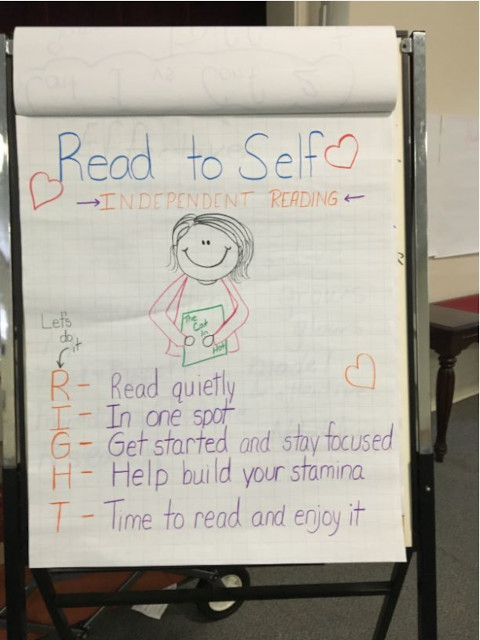 Read to Self
→INDEPENDENT READING←
The
Cat
in
Hat
Let's
do
it
R - Read quietly
I - In one spot
G - Get started and stay focused
H - Help build your stamina
T - Time to read and enjoy it